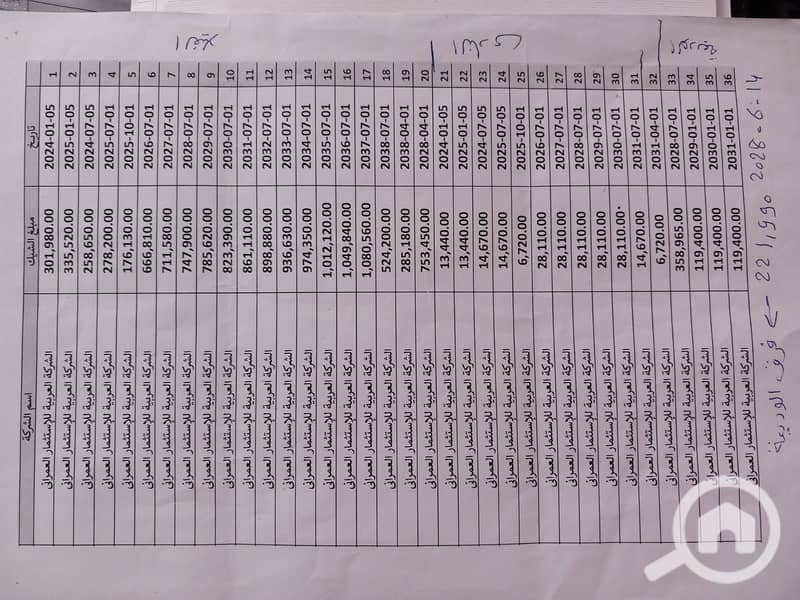 تاريخ مبلغ الشيك اسم الشركة
1 2024-01-05 301,980.00 الشركة العربية للإستثمار العمرانى
2 2025-01-05 335,520.00 الشركة العربية للإستثمار العمرانى
3 2024-07-05 258,650.00 الشركة العربية للإستثمار العمرانى
4 2025-07-01 278,200.00 الشركة العربية للإستثمار العمرانى
5 2025-10-01 176,130.00 الشركة العربية للإستثمار العمرانى
6 2026-07-01 666,810.00 الشركة العربية للإستثمار العمرانى
7 2027-07-01 711,580.00 الشركة العربية للإستثمار العمرانى
8 2028-07-01 747,900.00 الشركة العربية للإستثمار العمرانى
9 2029-07-01 785,620.00 الشركة العربية للإستثمار العمرانى
10 2030-07-01 823,390.00 الشركة العربية للإستثمار العمرانى
11 2031-07-01 861,110.00 الشركة العربية للإستثمار العمرانى
12 2032-07-01 898,880.00 الشركة العربية للإستثمار العمرانى
13 2033-07-01 936,630.00 الشركة العربية للإستثمار العمرانى
14 2034-07-01 974,350.00 الشركة العربية للإستثمار العمرانى
15 2035-07-01 1,012,120.00 الشركة العربية للإستثمار العمرانى
16 2036-07-01 1,049,840.00 الشركة العربية للإستثمار العمرانى
17 2037-07-01 1,080,560.00 الشركة العربية للإستثمار العمرانى
18 2038-07-01 524,200.00 الشركة العربية للإستثمار العمرانى
19 2038-04-01 285,180.00 الشركة العربية للإستثمار العمرانى
20 2028-04-01 753,450.00 الشركة العربية للإستثمار العمرانى
21 2024-01-05 13,440.00 الشركة العربية للإستثمار العمرانى
22 2025-01-05 13,440.00 الشركة العربية للإستثمار العمرانى
23 2024-07-05 14,670.00 الشركة العربية للإستثمار العمرانى
24 2025-07-05 14,670.00 الشركة العربية للإستثمار العمرانى
25 2025-10-01 6,720.00 الشركة العربية للإستثمار العمرانى
26 2026-07-01 28,110.00 الشركة العربية للإستثمار العمرانى
27 2027-07-01 28,110.00 الشركة العربية للإستثمار العمرانى
28 2028-07-01 28,110.00 الشركة العربية للإستثمار العمرانى
29 2029-07-01 28,110.00 الشركة العربية للإستثمار العمرانى
30 2030-07-01 28,110.00 الشركة العربية للإستثمار العمرانى
31 2031-07-01 14,670.00 الشركة العربية للإستثمار العمرانى
32 2031-04-01 6,720.00 الشركة العربية للإستثمار العمرانى
33 2028-07-01 358,965.00 الشركة العربية للإستثمار العمرانى
34 2029-01-01 119,400.00 الشركة العربية للإستثمار العمرانى
35 2030-01-01 119,400.00 الشركة العربية للإستثمار العمرانى
36 2031-01-01 119,400.00 الشركة العربية للإستثمار العمرانى
فرق الوديعة ← 221,990 2028-6-14